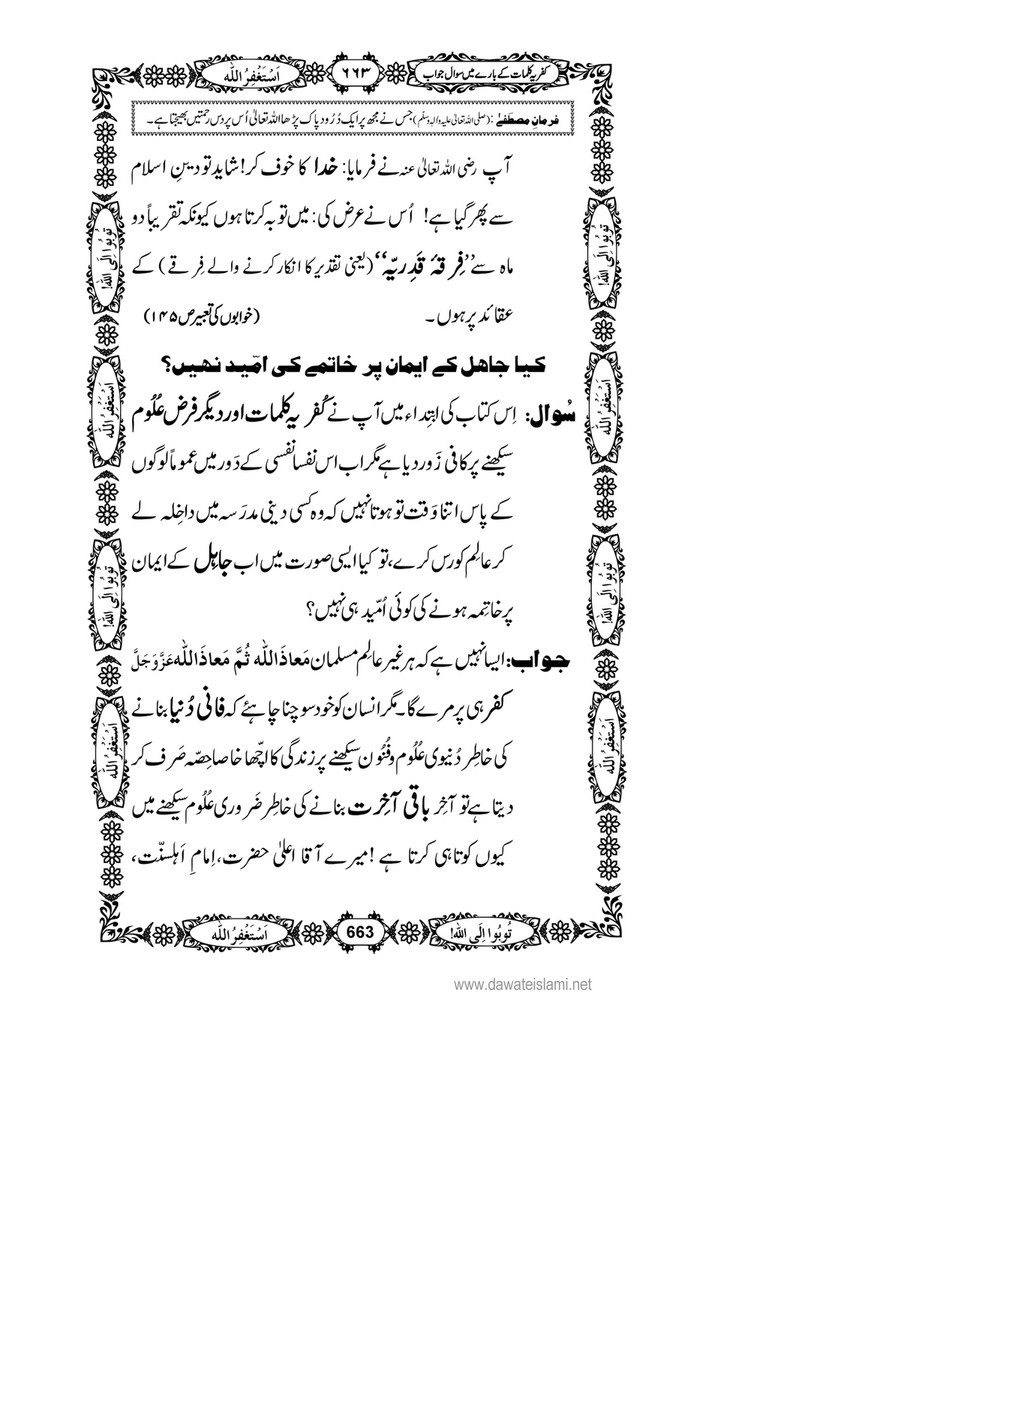 کفریہ کلمات کے بارے میں سوال جواب
٦٦٣
اَسْتَغْفِرُ اللّٰه
فرمانِ مصطَفٰے :(صلی اللہ تعالیٰ علیہ والہ وسلّم) جس نے مجھ پر ایک دُرُود پاک پڑھا اللہ تعالیٰ اُس پر دس رحمتیں بھیجتا ہے۔
آپ رضی اللہ تعالیٰ عنہ نے فرمایا: خدا کا خوف کر! شاید تو دینِ اسلام
سے پھر گیا ہے! اُس نے عرض کی: میں توبہ کرتا ہوں کیونکہ تقریباً دو
ماہ سے ’’فِرقۂ قَدرِیّہ‘‘ (یعنی تقدیر کا انکار کرنے والے فِرقے) کے
عقائد پر ہوں۔ (خوابوں کی تعبیر ص ۱۴۵)
کیا جاھل کے ایمان پر خاتمے کی امّید نھیں؟
سُوال: اِس کتاب کی ابتِداء میں آپ نے کُفریہ کلمات اور دیگر فرض عُلُوم
سیکھنے پر کافی زَور دیا ہے مگر اب اس نفسا نفسی کے دَور میں عموماً لوگوں
کے پاس اتنا وَقت تو ہوتا نہیں کہ وہ کسی دینی مدرَسہ میں داخِلہ لے
کر عالِم کورس کرے، تو کیا ایسی صورت میں اب جاہِل کے ایمان
پر خاتِمہ ہونے کی کوئی اُمّید ہی نہیں؟
جواب: ایسا نہیں ہے کہ ہر غیر عالِم مسلمان مَعاذَاللّٰه ثُمَّ مَعاذَاللّٰه عَزَّوَجَلَّ
کفر ہی پر مرے گا۔ مگر انسان کو خود سوچنا چاہئے کہ فانی دُنیا بنانے
کی خاطِر دُنیوی عُلُوم وفُنُون سیکھنے پر زندگی کا اچّھا خاصا حِصّہ صَرف کر
دیتا ہے تو آخِر باقی آخِرت بنانے کی خاطِر ضَروری عُلُوم سیکھنے میں
کیوں کوتاہی کرتا ہے! میرے آقا اعلیٰ حضرت، اِمامِ اَہلسنّت،
تُوبُوا اِلَی اللّٰه!
اَسْتَغْفِرُ اللّٰه
تُوبُوا اِلَی اللّٰه!
اَسْتَغْفِرُ اللّٰه
تُوبُوا اِلَی اللّٰه!
اَسْتَغْفِرُ اللّٰه
تُوبُوا اِلَی اللّٰه!
اَسْتَغْفِرُ اللّٰه
تُوبُوا اِلَی اللّٰه!
663
اَسْتَغْفِرُ اللّٰه
www.dawateislami.net